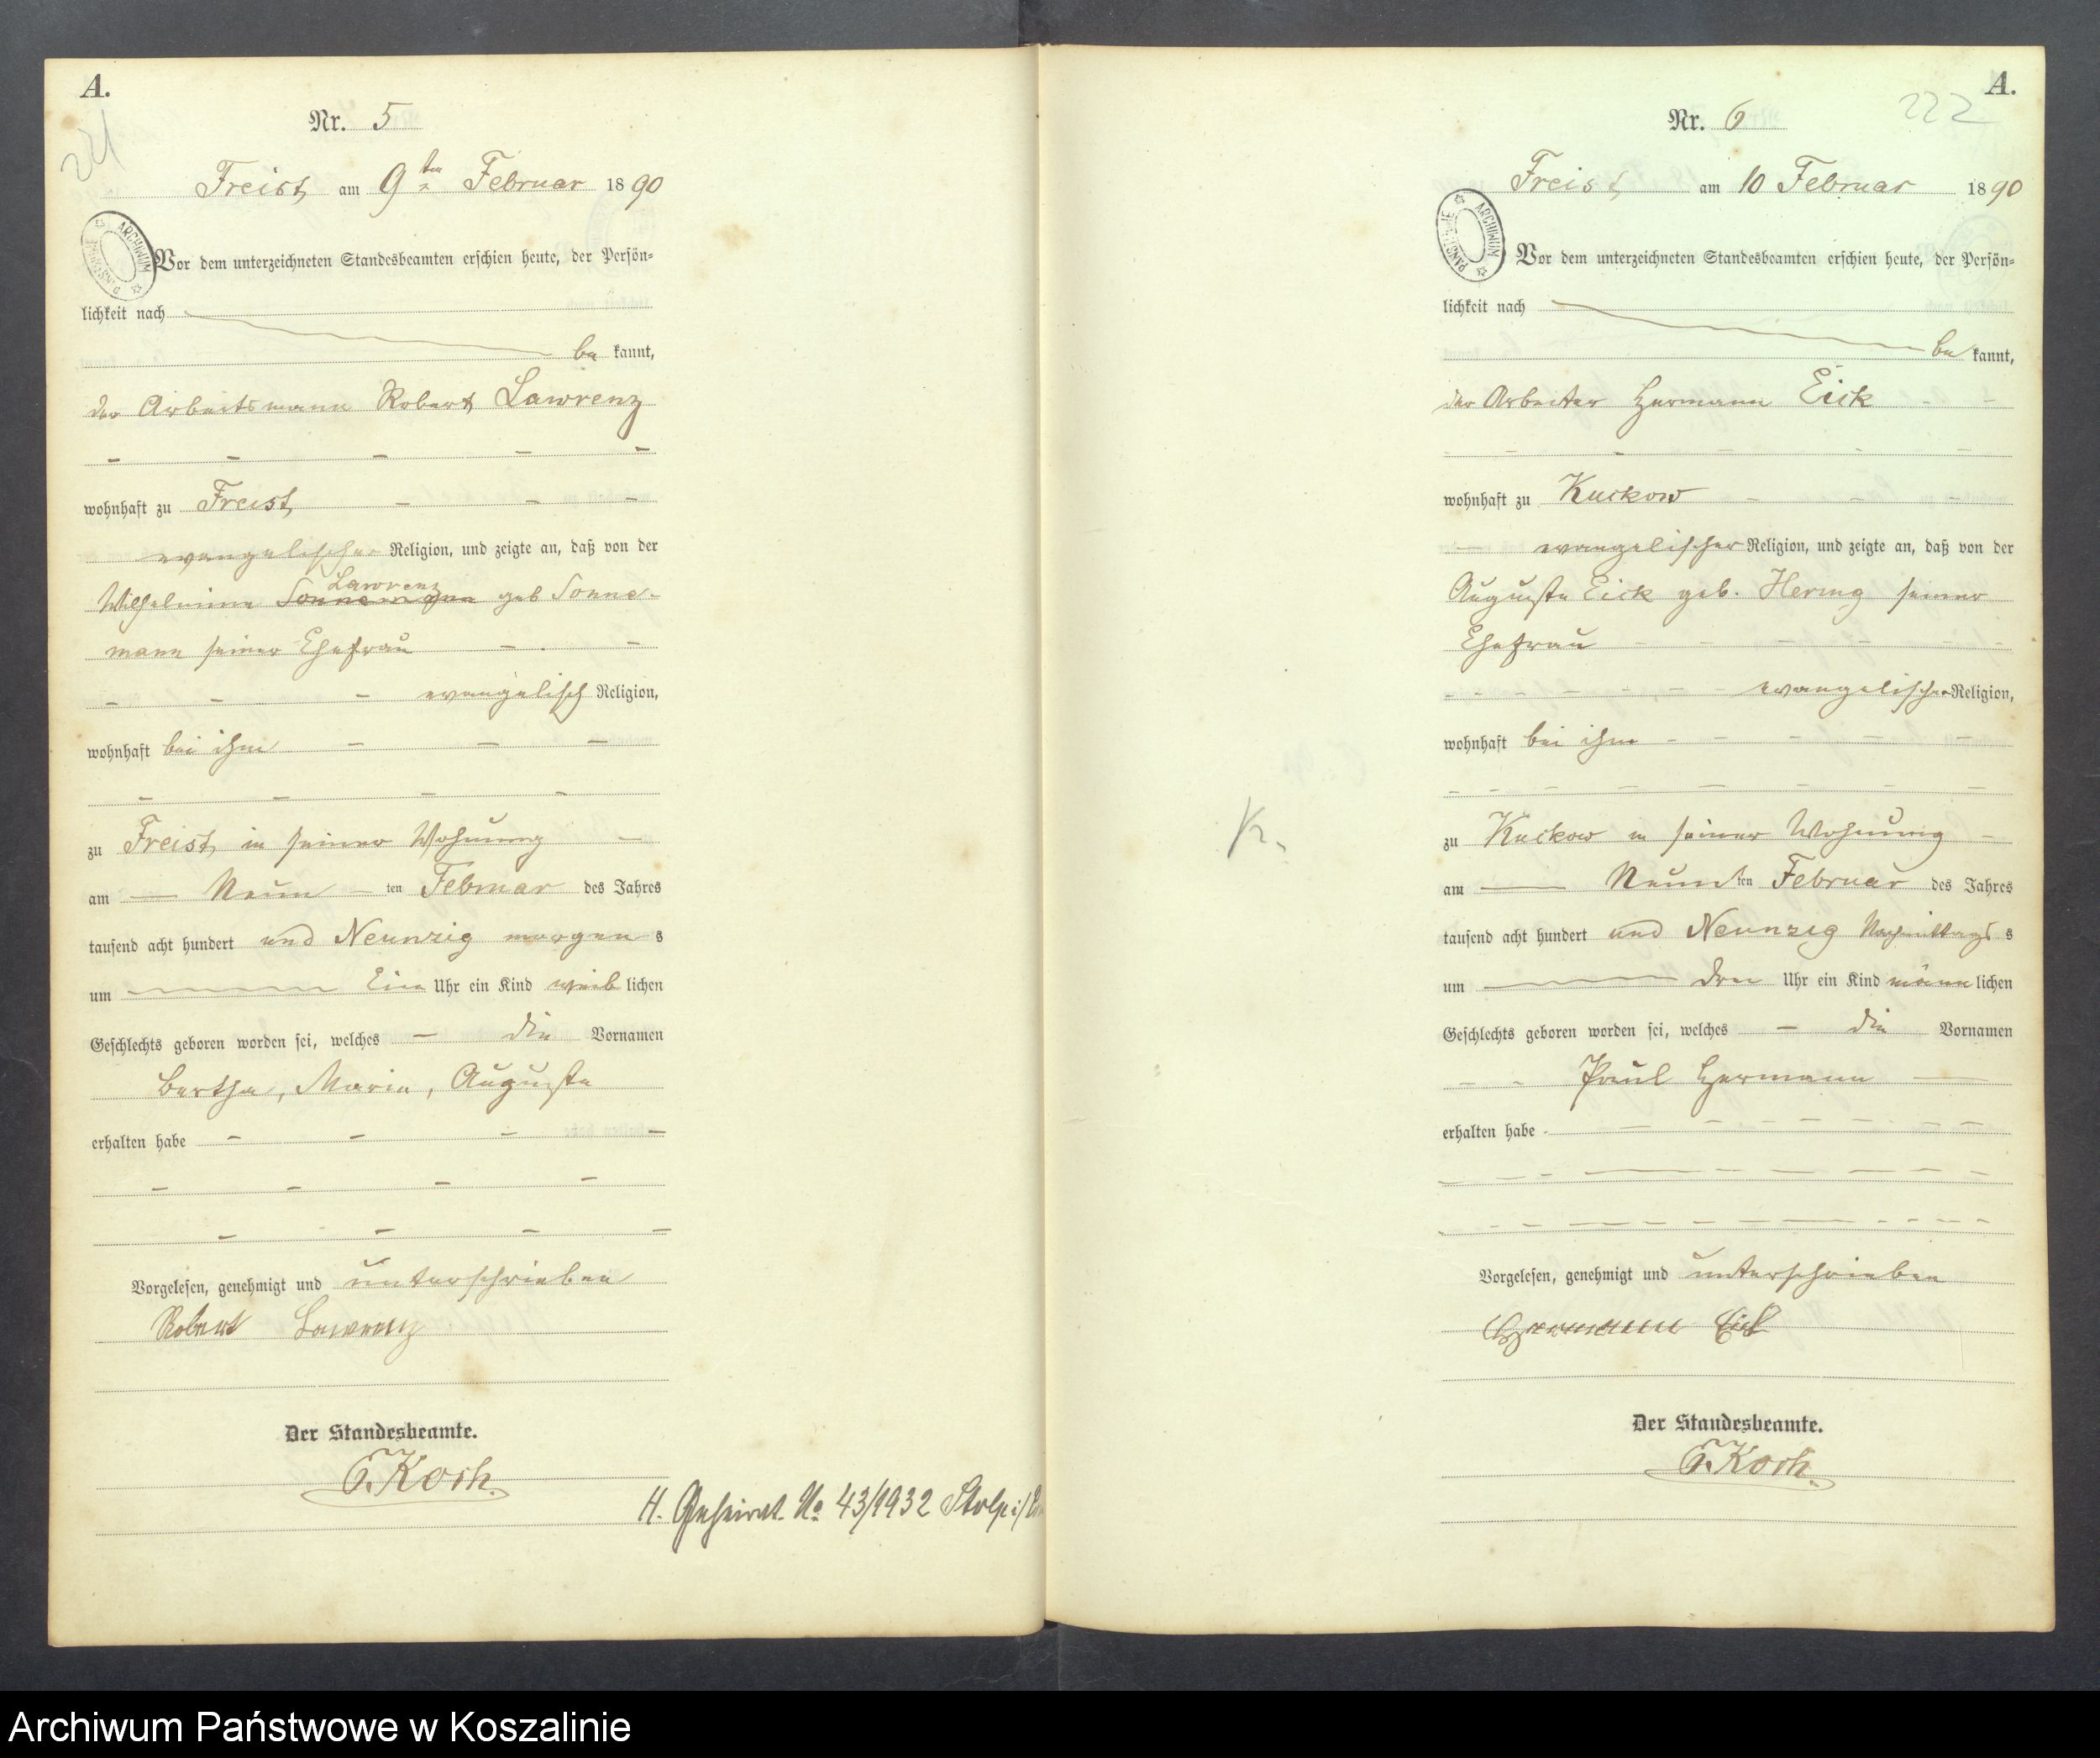 A.
221
Nr. 5
Freist am 9ten Februar 1890
ARCHIWUM PAŃSTWOWE
Vor dem unterzeichneten Standesbeamten erschien heute, der Persön=
lichkeit nach
be kannt,
der Arbeitsmann Robert Lawrenz
wohnhaft zu Freist
evangelischer Religion, und zeigte an, daß von der
Lawrenz
Wilhelmine Sonnemann geb Sonne-
mann seiner Ehefrau
evangelisch Religion,
wohnhaft bei ihm
zu Freist in seiner Wohnung
am Neun ten Februar des Jahres
tausend acht hundert und Neunzig morgen s
um Ein Uhr ein Kind weib lichen
Geschlechts geboren worden sei, welches die Vornamen
Bertha, Marie, Auguste
erhalten habe
Vorgelesen, genehmigt und unterschrieben
Robert Lawrenz
Der Standesbeamte.
G. Koch.
H. Geheirat. No 43/1932 Stolp i/
A.
222
Nr. 6
Freist am 10 Februar 1890
ARCHIWUM PAŃSTWOWE
Vor dem unterzeichneten Standesbeamten erschien heute, der Persön=
lichkeit nach
be kannt,
der Arbeiter Hermann Eick
wohnhaft zu Kuckow
evangelischer Religion, und zeigte an, daß von der
Auguste Eick geb. Hering seiner
Ehefrau
evangelischer Religion,
wohnhaft bei ihm
zu Kuckow in seiner Wohnung
K.
am Neunt ten Februar des Jahres
tausend acht hundert und Neunzig Nachmittags s
um drei Uhr ein Kind männ lichen
Geschlechts geboren worden sei, welches die Vornamen
Paul Hermann
erhalten habe
Vorgelesen, genehmigt und unterschrieben
Hermann Eick
Der Standesbeamte.
G. Koch.
Archiwum Państwowe w Koszalinie